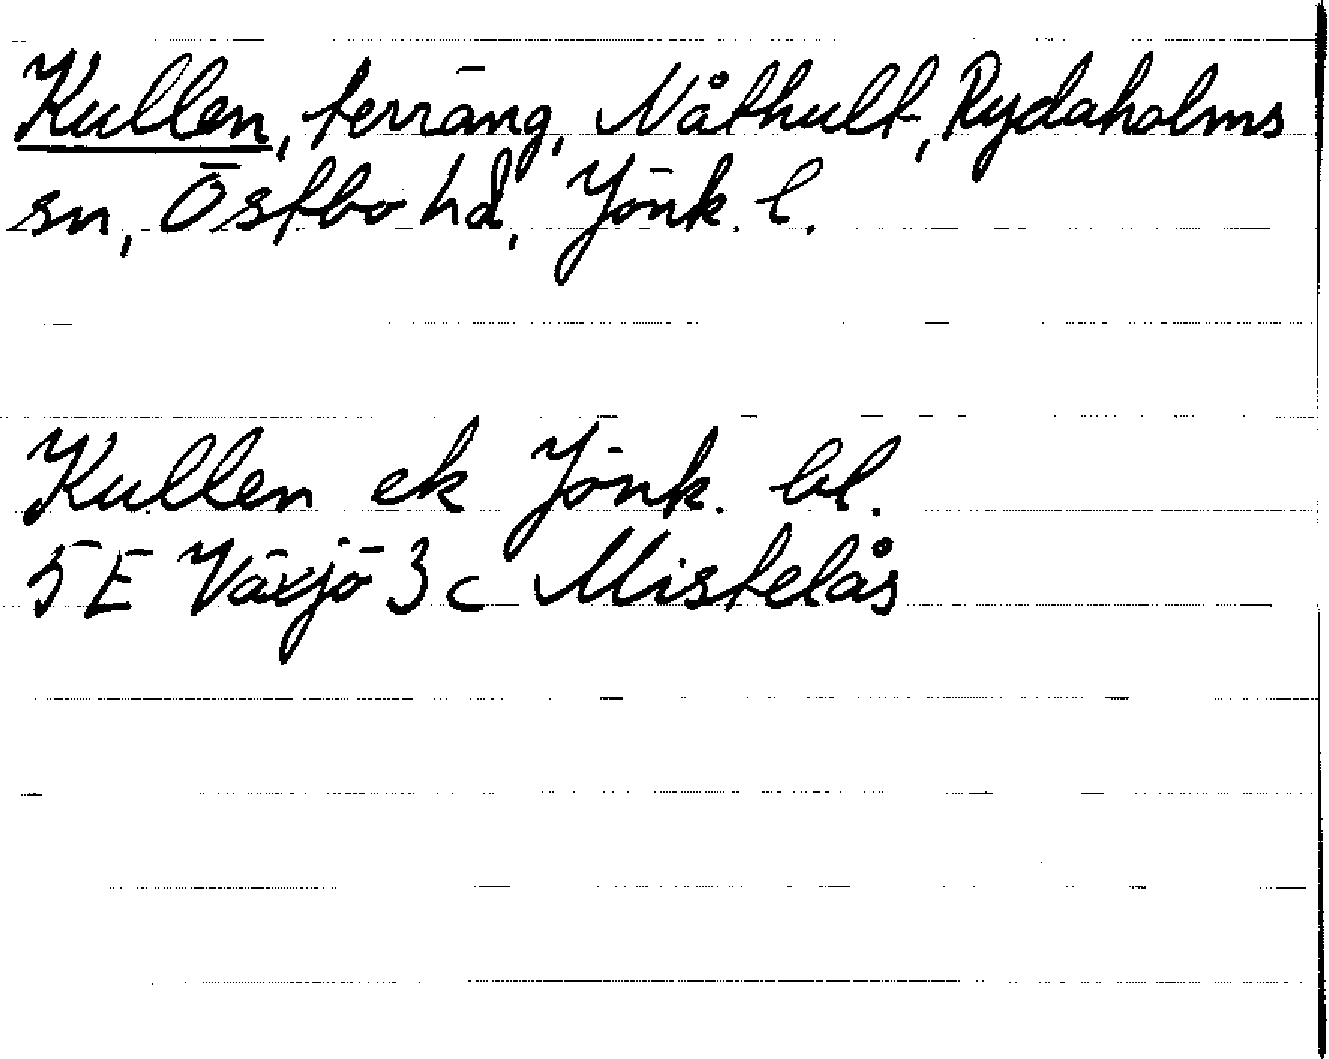 Kullen, terräng, Nåthult, Rydaholms
sn, Östbo hd, Jönk. l.
Kullen ek Jönk. bl.
5E Växjö 3c Mistelås